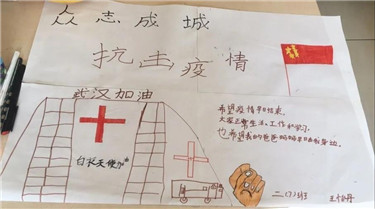 众志成城
抗击疫情
武汉加油
白衣天使加油
希望疫情早日结束,
大家正常生活、工作和学习。
也希望我的爸爸妈妈早日回到身边。
二(7)班